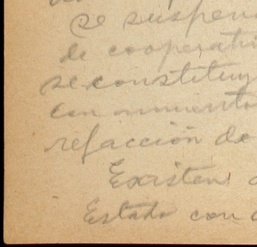 se suspen
de cooperati
se constituy
con miento
refacción de
Existen
Estado con